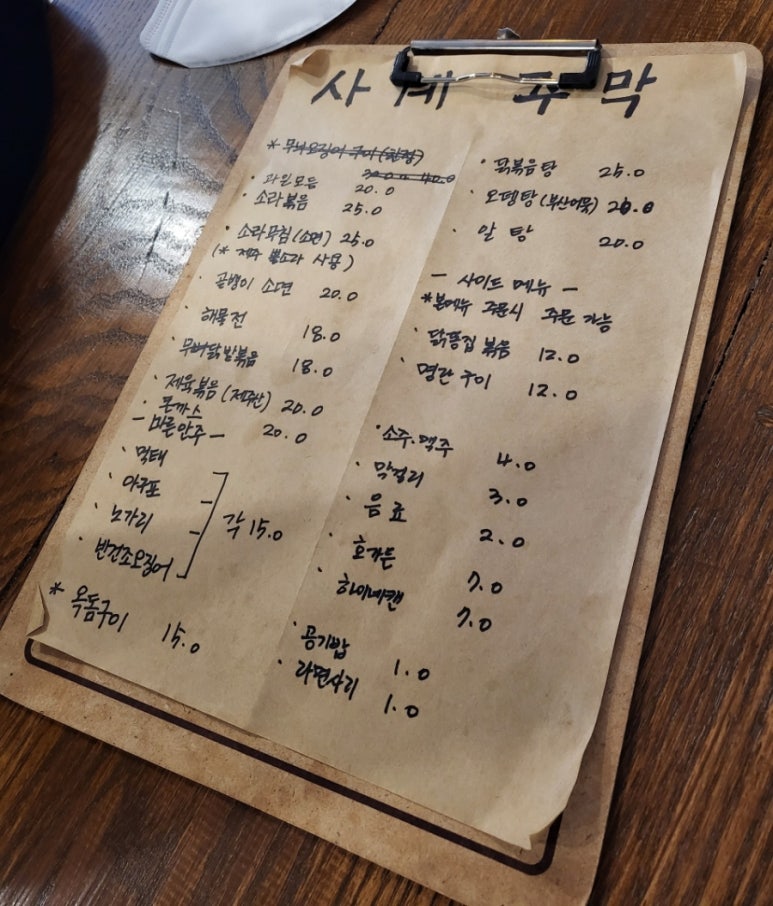 사계주막
* 무늬오징어 구이 (한정)
30.0 ~ 40.0
· 과일모듬 20.0
· 소라볶음 25.0
· 소라무침 (소면) 25.0
(* 제주 뿔소라 사용)
· 골뱅이 소면 20.0
· 해물전 18.0
· 무뼈닭발볶음 18.0
· 제육볶음 (제주산) 20.0
· 돈까스 20.0
- 마른안주 -
· 먹태
· 아구포
· 노가리
· 반건조오징어
각 15.0
* 옥돔구이 15.0
· 닭볶음탕 25.0
· 오뎅탕 (부산어묵) 20.0
· 알탕 20.0
- 사이드 메뉴 -
*본메뉴 주문시 주문 가능
· 닭똥집 볶음 12.0
· 명란구이 12.0
· 소주·맥주 4.0
· 막걸리 3.0
· 음료 2.0
· 호가든 7.0
· 하이네캔 7.0
· 공기밥 1.0
· 라면사리 1.0